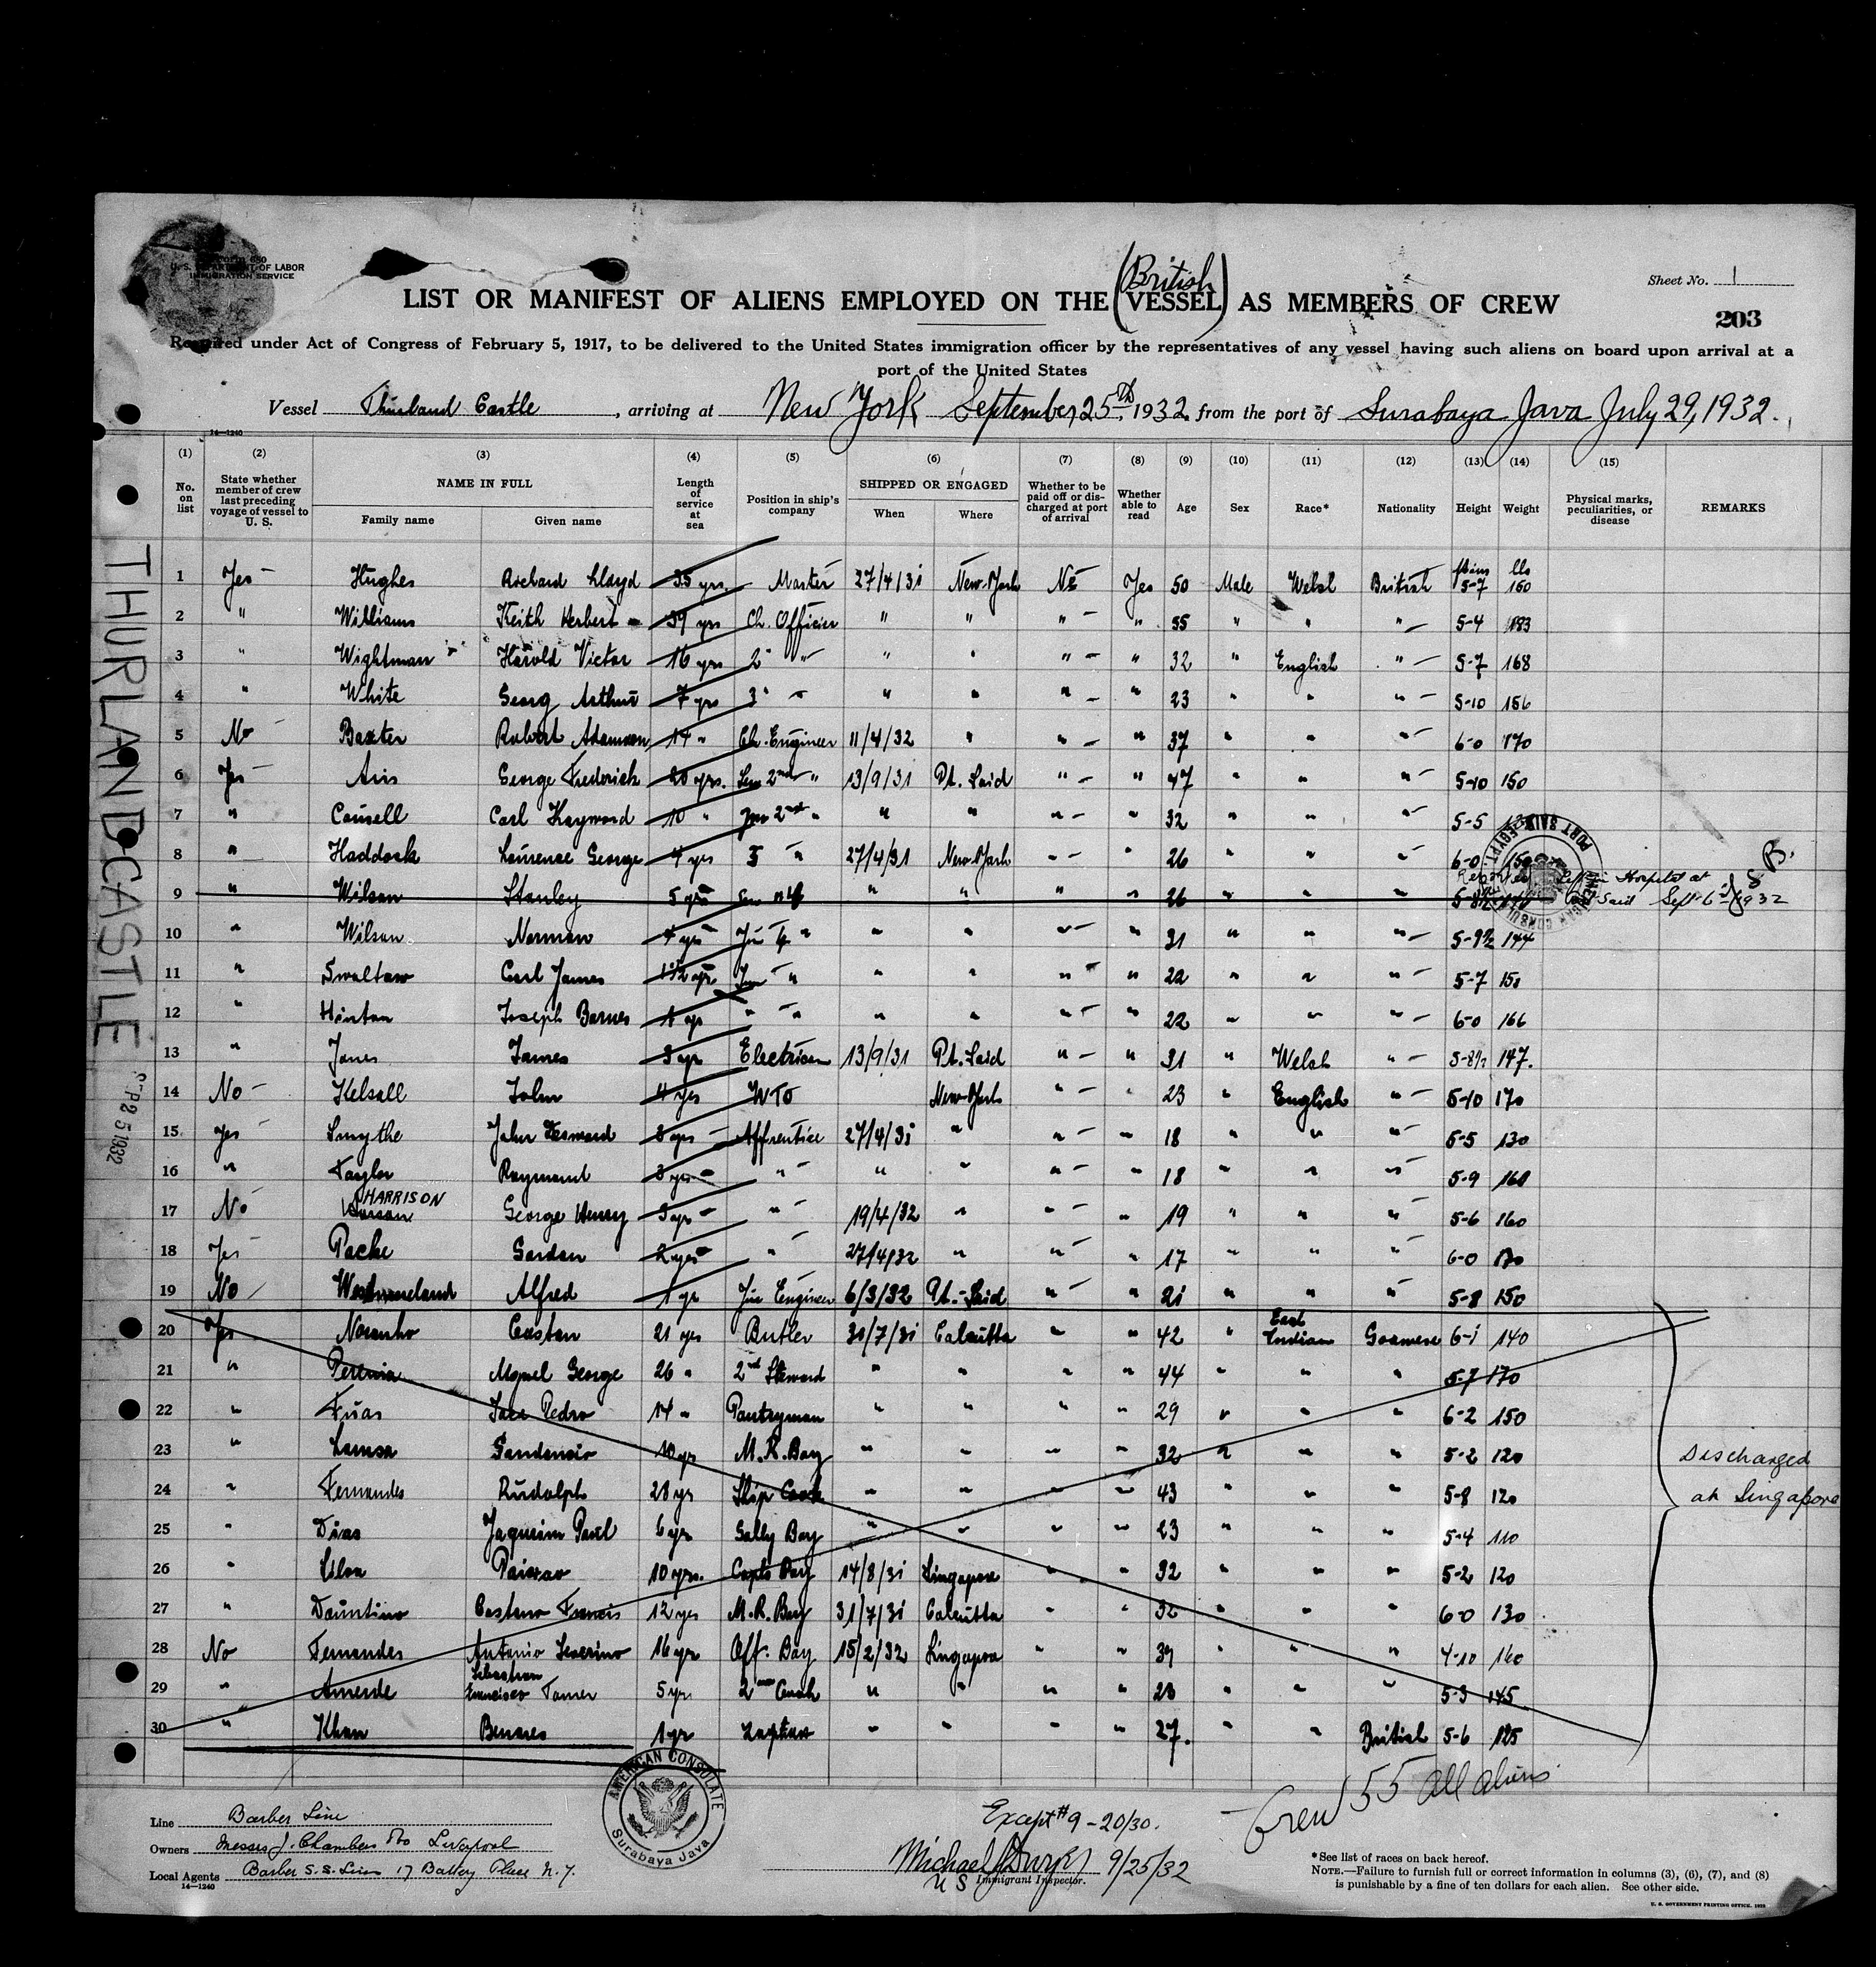 Form 680
U. S. DEPARTMENT OF LABOR
IMMIGRATION SERVICE
Sheet No. 1
203
(British)
LIST OR MANIFEST OF ALIENS EMPLOYED ON THE VESSEL AS MEMBERS OF CREW
Required under Act of Congress of February 5, 1917, to be delivered to the United States immigration officer by the representatives of any vessel having such aliens on board upon arrival at a
port of the United States
Vessel Thurland Castle, arriving at New York September 25th, 1932 from the port of Surabaya Java July 29, 1932.
14—1240
(1) (2) (3) (4) (5) (6) (7) (8) (9) (10) (11) (12) (13) (14) (15)
No. on list State whether member of crew last preceding voyage of vessel to U. S. NAME IN FULL Family name Given name Length of service at sea Position in ship's company SHIPPED OR ENGAGED When Where Whether to be paid off or discharged at port of arrival Whether able to read Age Sex Race* Nationality Height Weight Physical marks, peculiarities, or disease REMARKS
1 Yes Hughes Richard Lloyd 35 yrs. Master 27/4/31 New-York No Yes 50 Male Welsh British 5-7 150
2 " Williams Keith Herbert 39 yrs Ch. Officier " " " " 55 " " " 5-4 183
3 " Wightman Harold Victor 16 yrs 2 " " " " " 32 " English " 5-7 168
4 " White Georg Arthur 7 yrs 3 " " " " " 23 " " " 5-10 156
5 No Baxter Robert Adamson 14 " Ch. Engineer 11/4/32 " " " 37 " " " 6-0 170
6 Yes Airs George Frederick 20 yrs. Sen 2nd " 13/9/31 Pt. Said " " 47 " " " 5-10 150
7 " Causell Carl Haymond 10 " Jun 2nd " " " " " 32 " " " 5-5
8 " Haddock Laurence George 4 yrs 3 " 27/4/31 New-York " " 26 " " " 6-0 150
9 " Wilson Stanley 5 yrs Sen 4 " " " " 26 " " " 5-8½ Left in Hospital at Port Said Sept. 6th 1932
10 " Wilson Norman 4 yrs Jun 4 " " " " " 31 " " " 5-9½ 144
11 " Carl James 1½ yr Jun " " " " " 22 " " " 5-7 150
12 " Hinton Joseph Barnes 1 yr " " " " " " 22 " " " 6-0 166
13 " Jones James 3 yr Electrican 13/9/31 Pt. Said " " 31 " Welsh " 5-8½ 147.
14 No Kelsall John 4 yrs WTO New-York " " 23 " English " 5-10 170
15 Yes Smythe John 3 yrs Apprentice 27/4/31 " " " 18 " " " 5-5 130
16 " Taylor Raymond 3 yrs " " " " " 18 " " " 5-9 160
HARRISON
17 No George Henry 3 yr " 19/4/32 " " " 19 " " " 5-6 160
18 Yes Pache Gordon 2 yrs " 27/4/32 " " " 17 " " " 6-0 170
19 No Westmoreland Alfred 1 yr Jun Engineer 6/3/32 Pt.-Said " " 21 " " " 5-8 150
20 Yes Noronho Caston 21 yrs Butler 30/7/31 Calcutta " " 42 " East Indian Goamese 6-1 140
21 " Pereria Miguel George 26 " 2nd Steward " " " " 44 " " " 5-7 170
22 " Frias Jose Pedro 14 " Pantryman " " " " 29 " " " 6-2 150
23 " Gandencio 10 yr M. R. Boy " " " " 32 " " " 5-2 120
24 " Fernandes Rudolph 28 yr Ship Cook " " " " 43 " " " 5-8 120
25 " Dias Jaquim Paul 6 yr Gally Boy " " " " 23 " " " 5-4 110
26 " Silva 10 yrs. Capts Boy 14/8/31 Singapore " " 32 " " " 5-2 120
27 " Dauntino Castano Francis 12 yrs M. R. Boy 31/7/31 Calcutta " " 32 " " " 6-0 130
28 No Fernandes Antonio Severino 16 yr Off. Boy 15/2/32 Singapor " " 39 " " " 4-10 160
29 " Ameide Sebastian Francisco 5 yr 2nd Cook " " " " 23 " " " 5-3 145
30 " Khan Benares 1 yr " " " " 27. " " British 5-6 125
Discharged
at Singapore
THURLAND CASTLE
SEP 25 1932
AMERICAN CONSULATE
Surabaya Java
Crew 55 all aliens
Line Barber Line
Owners Messrs J. Chambers & Co Liverpool
Local Agents Barber S.S. Line 17 Battery Place N. Y.
14—1240
Except #9 - 20/30.
Michael J Dwyer 9/25/32
U S Immigrant Inspector.
*See list of races on back hereof.
NOTE.—Failure to furnish full or correct information in columns (3), (6), (7), and (8)
is punishable by a fine of ten dollars for each alien. See other side.
U. S. GOVERNMENT PRINTING OFFICE